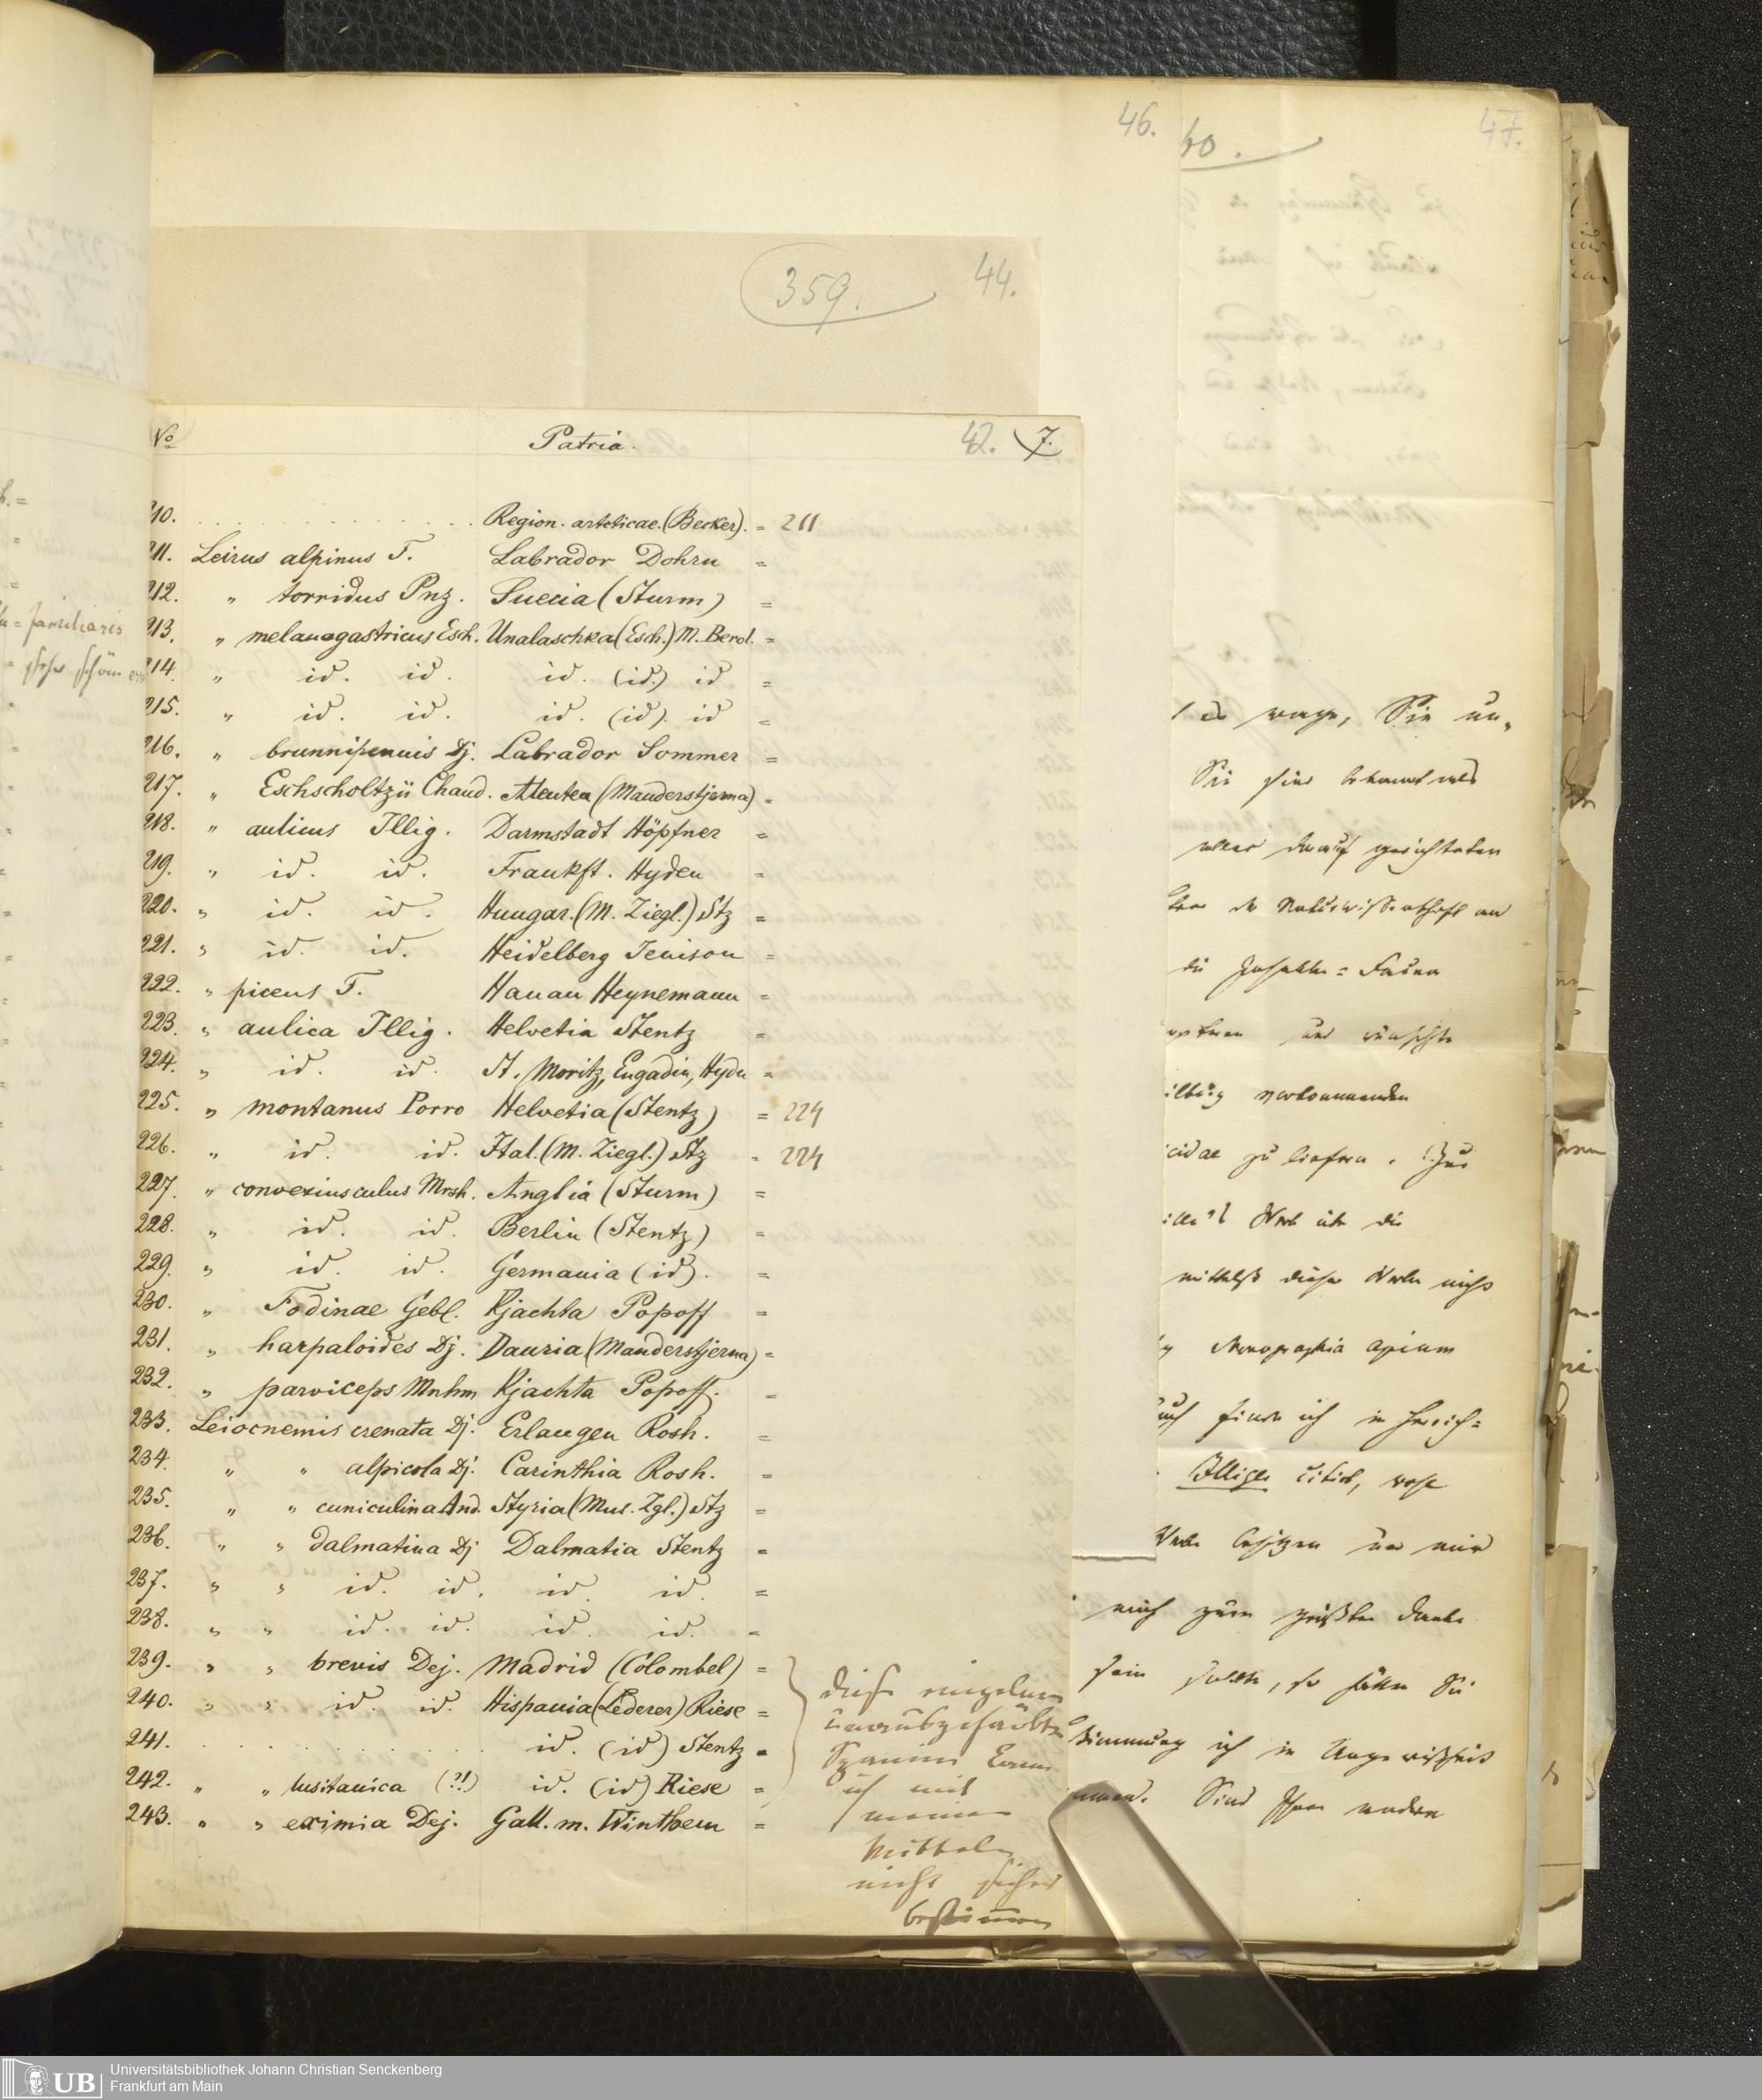 46.
47.
359.
44.
No
Patria.
42. 7.
210. . . . . . . . Region. arcticae. (Becker). = 211
211. Leirus alpinus F. Labrador Dohrn =
212. " torridus Pnz. Suecia (Sturm) =
213. " melanogastricus Esch. Unalaschka (Esch.) M. Berol. =
214. " id. id. id. (id.) id =
215. " id. id. id. (id). id =
216. " brunnipennis Dj. Labrador Sommer =
217. " Eschscholtzii Chaud. Aleuten (Manderstjerna) =
218. " aulicus Illig. Darmstadt Höpfner =
219. " id. id. Frankft. Hyden =
220. " id. id. Hungar. (M. Ziegl.) Stz =
221. " id. id. Heidelberg Jenison =
222. " piceus F. Hanau Heynemann =
223. " aulica Illig. Helvetia Stentz =
224. " id. id. St. Moritz, Engadin, Hydn =
225. " montanus Porro Helvetia (Stentz) = 224
226. " id. id. Ital. (M. Ziegl.) Stz = 224
227. " convexiusculus Mrsh. Anglia (Sturm) =
228. " id. id. Berlin (Stentz) =
229. " id. id. Germania (id). =
230. " Fodinae Gebl. Kjachta Popoff =
231. " harpaloides Dj. Dauria (Manderstjerna) =
232. " parviceps Mnhm Kjachta Popoff. =
233. Leiocnemis crenata Dj. Erlangen Rosh. =
234. " " alpicola Dj. Carinthia Rosh. =
235. " " cuniculina And. Styria (Mus. Zgl.) Stz =
236. " " dalmatina Dj Dalmatia Stentz =
237. " " id. id. id. id. =
238. " " id. id. id. id. =
239. " " brevis Dej. Madrid (Colombel) =
240. " " id. id. Hispania (Lederer) Riese =
241. . . . . . . . id. (id) Stentz =
242. " " lusitanica (?!) id. (id) Riese =
243. " " eximia Dej. Gall. m. Winthem =
diese einzelnen
Spanier kann
ich mit
meinen
Mitteln
nicht sicher
bestimmen
= familiaris
= sehr schön
wage, Sie un-
Sie sind
darauf gerichteten
der Naturwissenschaft an
die Insekten = Fauna
und wünschte
vorkommenden
zu liefern. Zur
Werk über die
mittelst dieses Werkes nicht
Monographia apium
finde ich in Herrich=
Illiger citirt,
besitzen und mir
mich zum größten Danke
sein sollte, so hätten Sie
ich in Ungewißheit
Sind Ihnen andere
UB Universitätsbibliothek Johann Christian Senckenberg
Frankfurt am Main